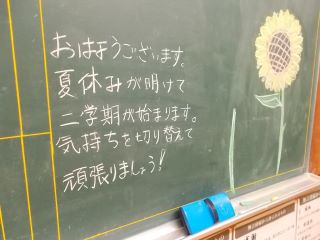 おはようございます。
夏休みが明けて
二学期が始まります。
気持ちを切り替えて
頑張りましょう!